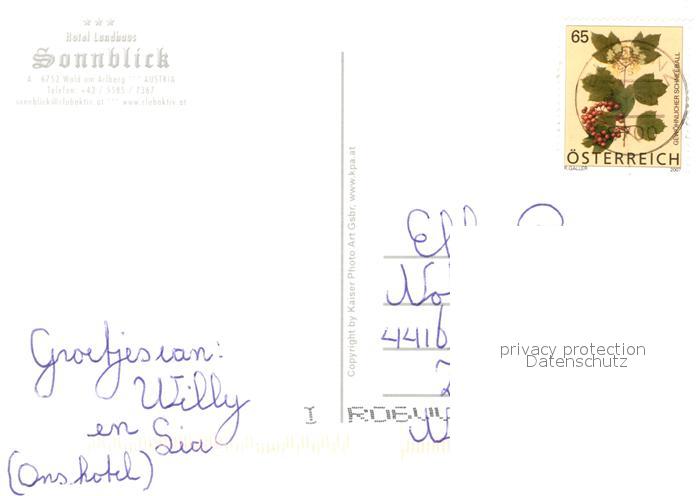 Hotel Landhaus
Sonnblick
A 6752 Wald am Arlberg *** AUSTRIA
Telefon: +43 / 5585 / 7367
sonnblick@clubaktiv.at *** www.clubaktiv.at
65
GEWÖHNLICHER SCHNEEBALL
ÖSTERREICH
R.GALLER 2007
Copyright by Kaiser Photo Art Gsbr, www.kpa.at
4416
privacy protection
Datenschutz
Groetjes van:
Willy
en Sia
(Ons hotel)